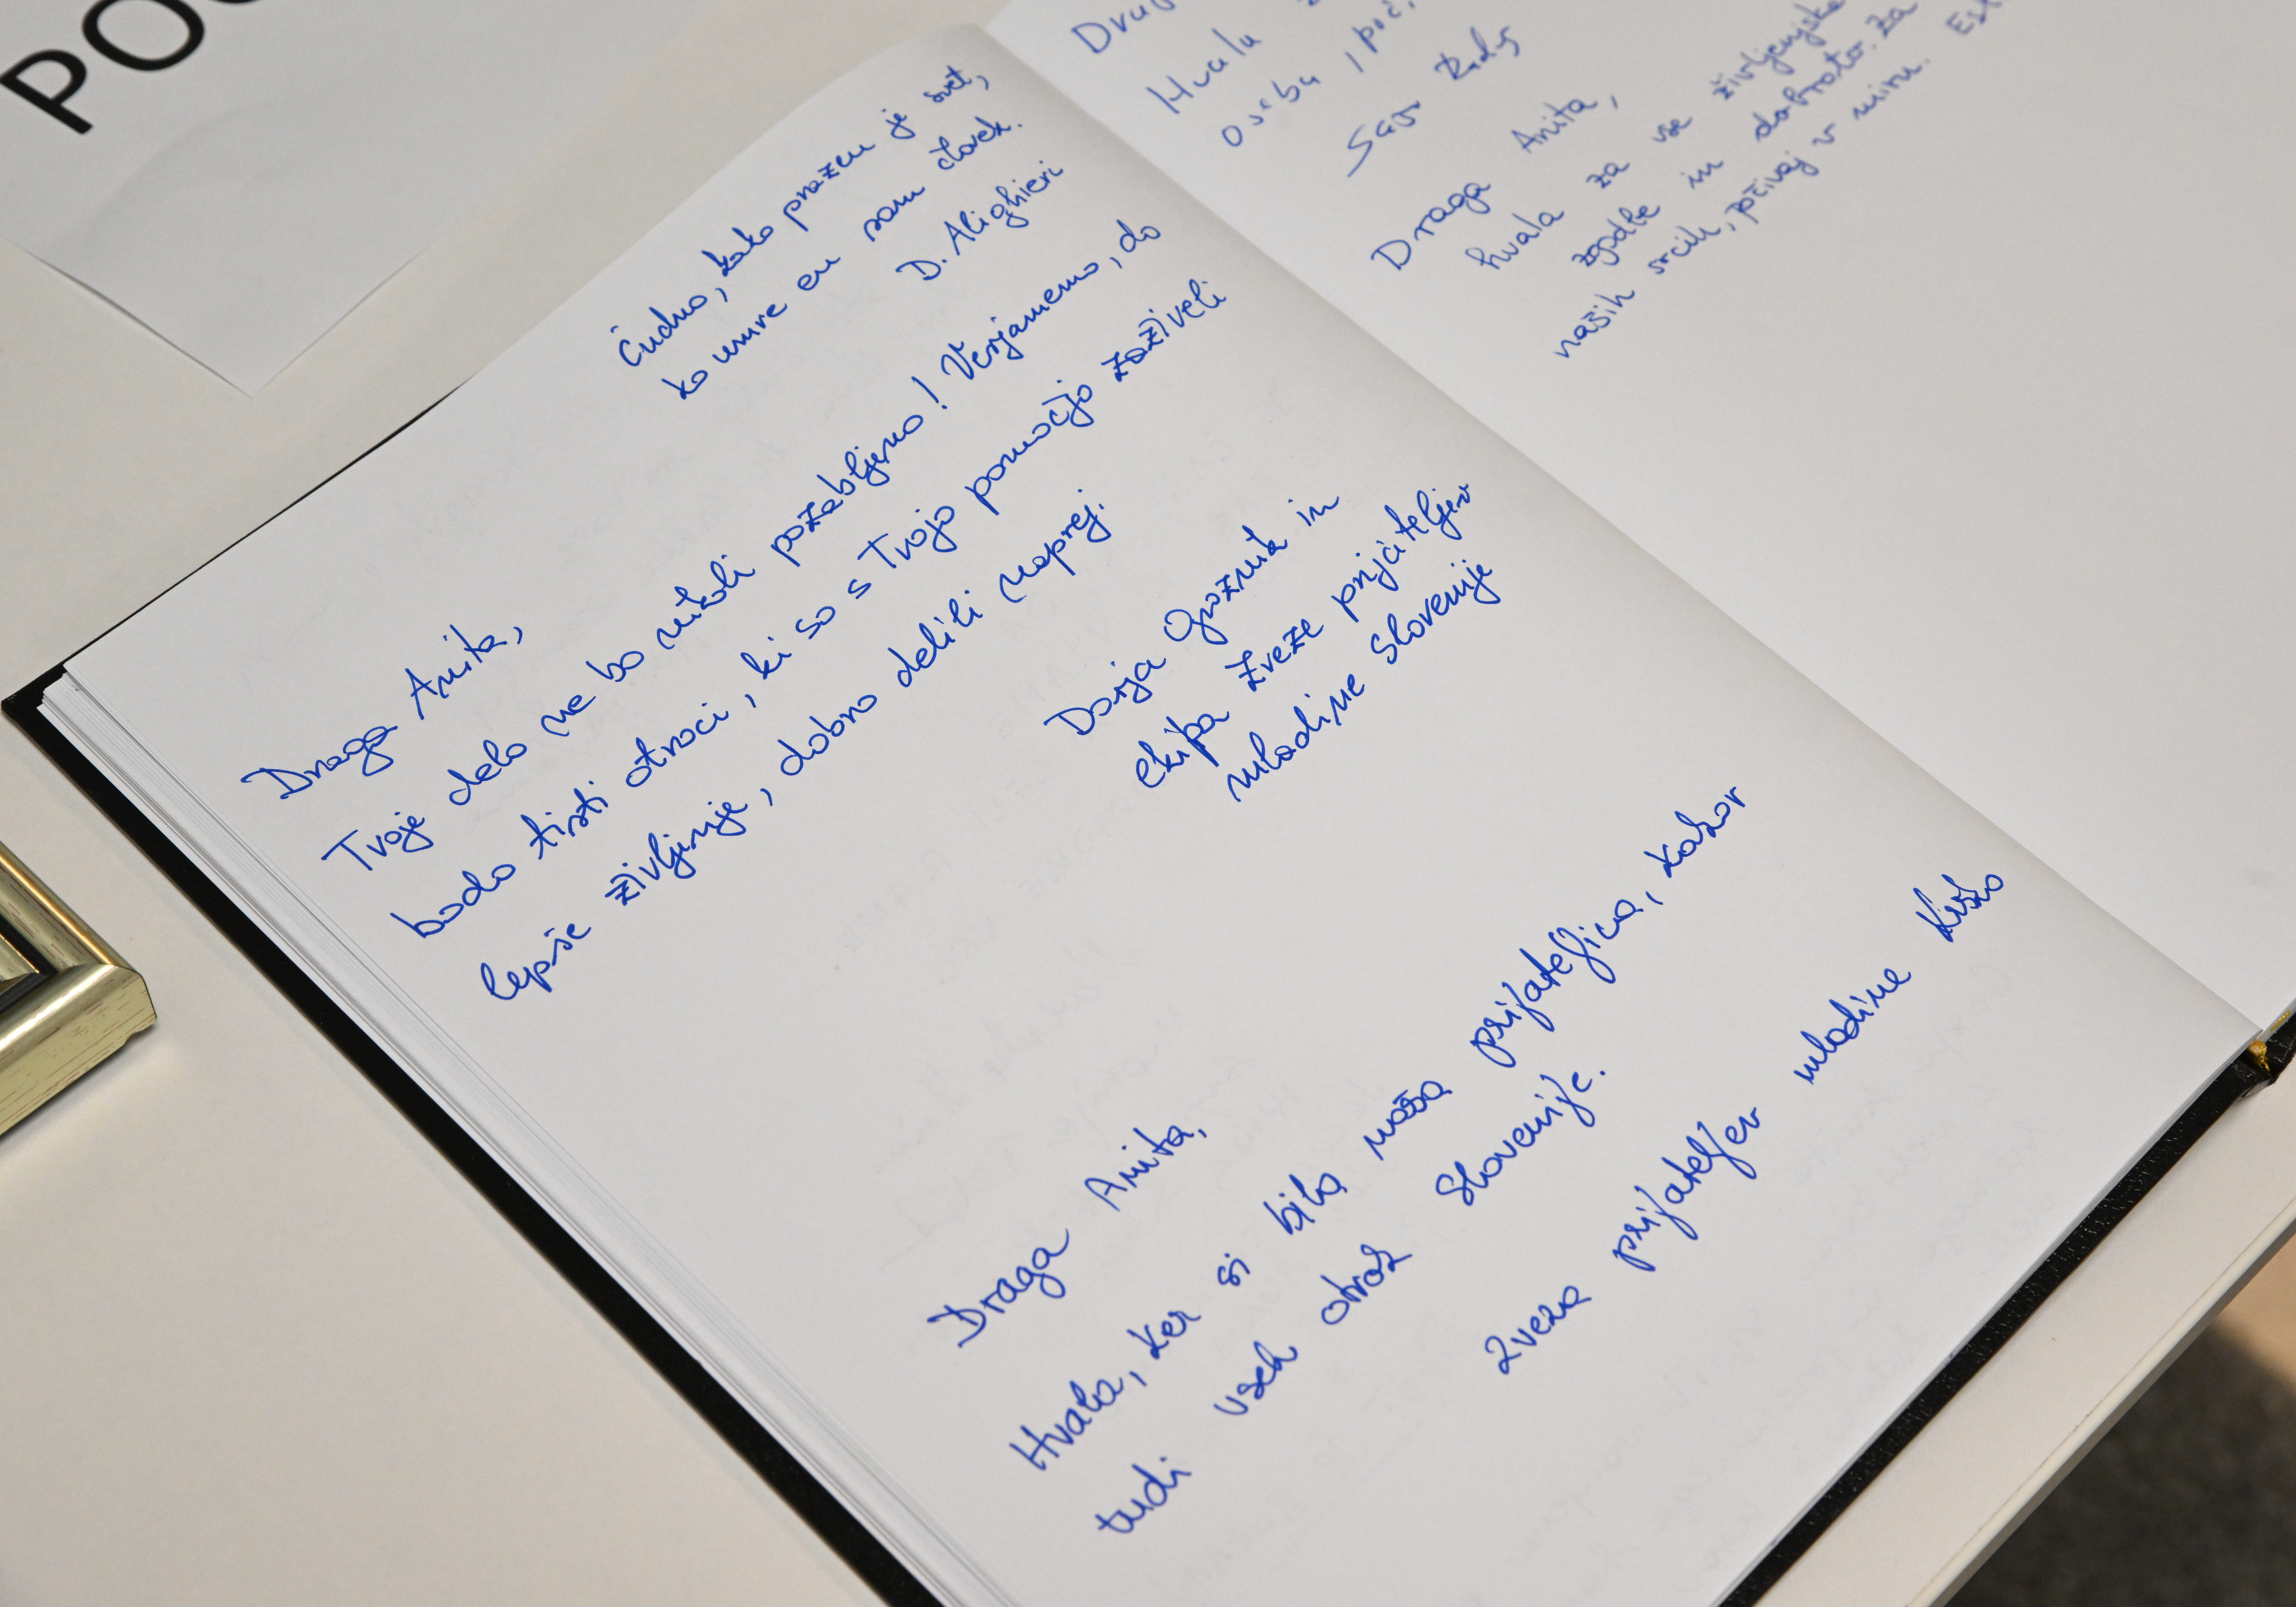 Čudno, kako prazen je svet,
ko umre en sam človek.
D. Alighieri
Draga Anita,
Tvoje delo ne bo nikoli pozabljeno! Verjamemo, do
bodo tisti otroci, ki so s Tvojo pomočjo zaživeli
lepše življenje, dobro delili naprej.
Darja Groznik in
ekipa Zveze prijateljev
mladine Slovenije
Draga Anita,
Hvala, ker si bila naša prijateljica, kakor
tudi vseh otrok Slovenije.
Zveza prijateljev mladine Krško
Hvala
oseba,
Draga Anita,
hvala za vse življenjske
zgodbe in dobroto. Za
naših srcih, počivaj v miru.